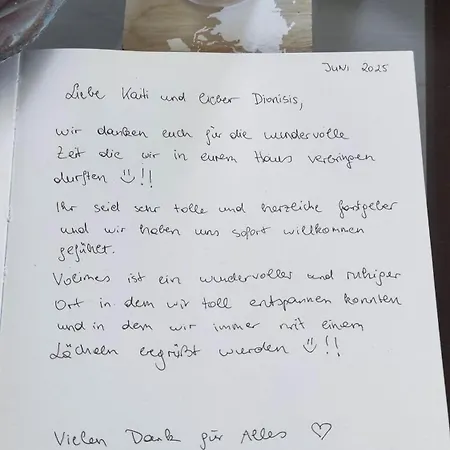 JUNI 2025
Liebe Kaiti und lieber Dionisis,
wir danken euch für die wundervolle
Zeit die wir in eurem Haus verbringen
durften ☺!!
Ihr seid sehr tolle und herzliche Gastgeber
und wir haben uns sofort willkommen
gefühlt.
Volimes ist ein wundervoller und ruhiger
Ort in dem wir toll entspannen konnten
und in dem wir immer mit einem
Lächeln begrüßt wurden ☺!!
Vielen Dank für Alles ♡